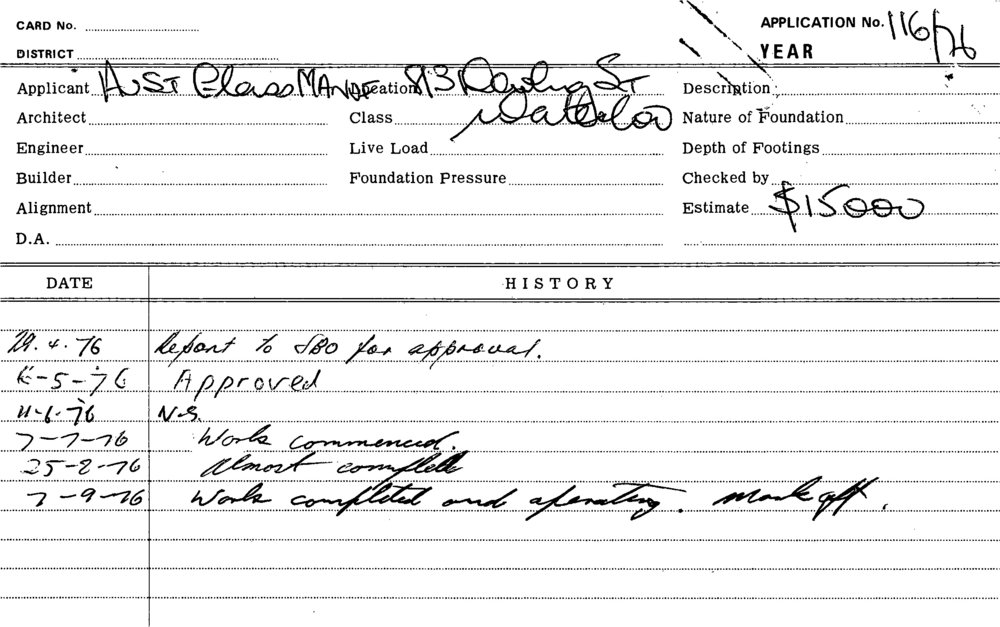 CARD No.
APPLICATION No. 116/76
DISTRICT
YEAR
Applicant Aust Glass Manuf Location 813 Dowling St Description
Architect Class Waterloo Nature of Foundation
Engineer Live Load Depth of Footings
Builder Foundation Pressure Checked by
Alignment Estimate $15000
D.A.
DATE HISTORY
29.4.76 Report to SBO for approval.
-5-76 Approved
11-6-76 N.S.
7-7-76 Work commenced.
25-8-76 Almost complete
7-9-76 Work completed and operating. Mark off.